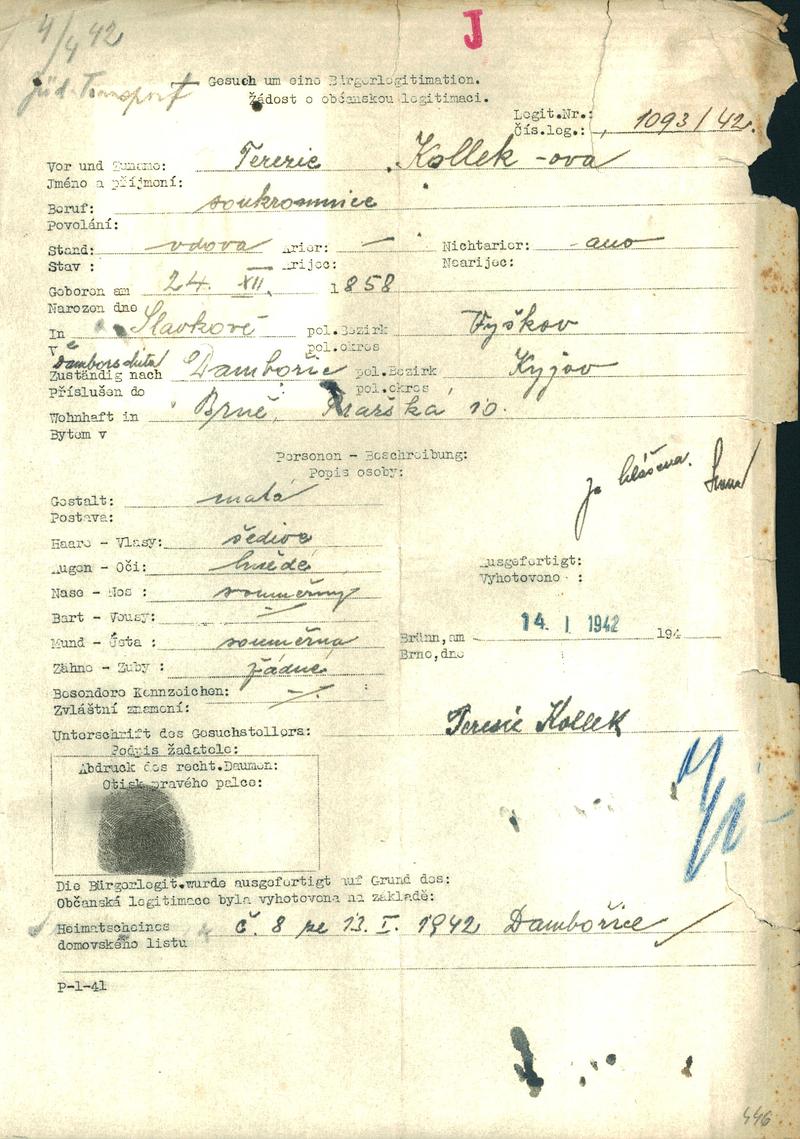 J
4/4 42
jüd. Transport
Gesuch um eine Bürgerlegitimation.
Žádost o občanskou legitimaci.
Legit.Nr.:
Čís.leg.: 1093/42.
Vor und Zuname: Terezie Kollek -ova
Jméno a příjmení:
Beruf: soukromnice
Povolání:
Stand: vdova Arier: — Nichtarier: ano
Stav : Arijec: Nearijec:
Geboren am 24. XII. 1858
Narozen dne
In Slavkově pol.Bezirk Vyškov
V pol.okres
Zuständig nach Dambořic pol.Bezirk Kyjov
Příslušen do pol.okres
Wohnhaft in Brně, 10.
Bytem v
Personen - Beschreibung:
Popis osoby:
je hlášena.
Gestalt: malá
Postava:
Haare - Vlasy: šedivé
Augen - Oči: hnědé
Nase - Nos : souměrný
Bart - Vousy: —
Mund - Ústa : souměrná
Zähne - Zuby : žádné
Besondere Kennzeichen: —
Zvláštní znamení:
Ausgefertigt:
Vyhotoveno :
Brünn,am 14. I 1942 194
Brno,dne
Unterschrift des Gesuchstellers: Teresie Kollek
Podpis žadatele:
Abdruck des recht.Daumen:
Otisk pravého palce:
Die Bürgerlegit.wurde ausgefertigt auf Grund des:
Občanská legitimace byla vyhotovena na základě:
Heimatscheines č. 8 ze 13. I. 1942 Dambořice
domovského listu
P-1-41
446